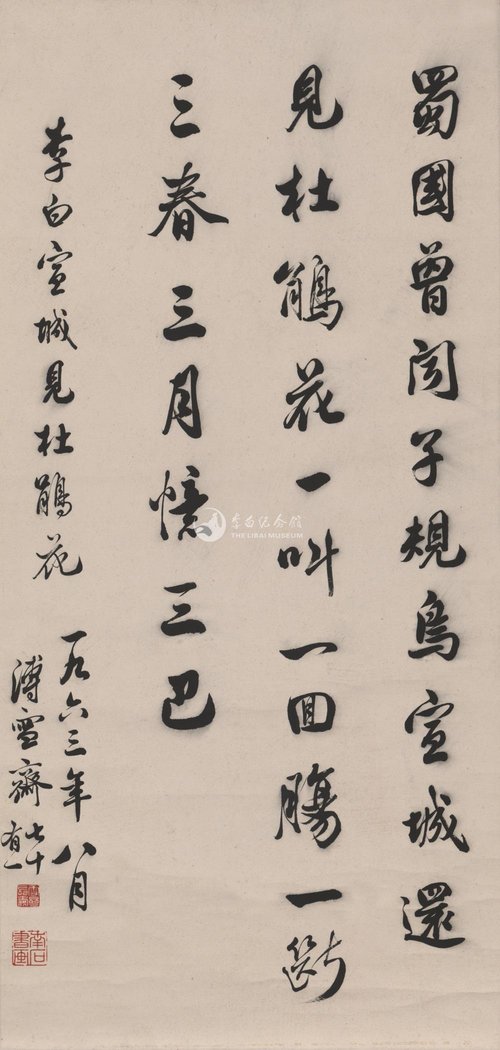 蜀國曾闻子規鳥宣城還
見杜鵑花一叫一回腸一斷
三春三月憶三巴
李白宣城見杜鵑花
一九六三年八月
溥雪齋七十有一
南石書画
李白纪念馆
THE LIBAI MUSEUM